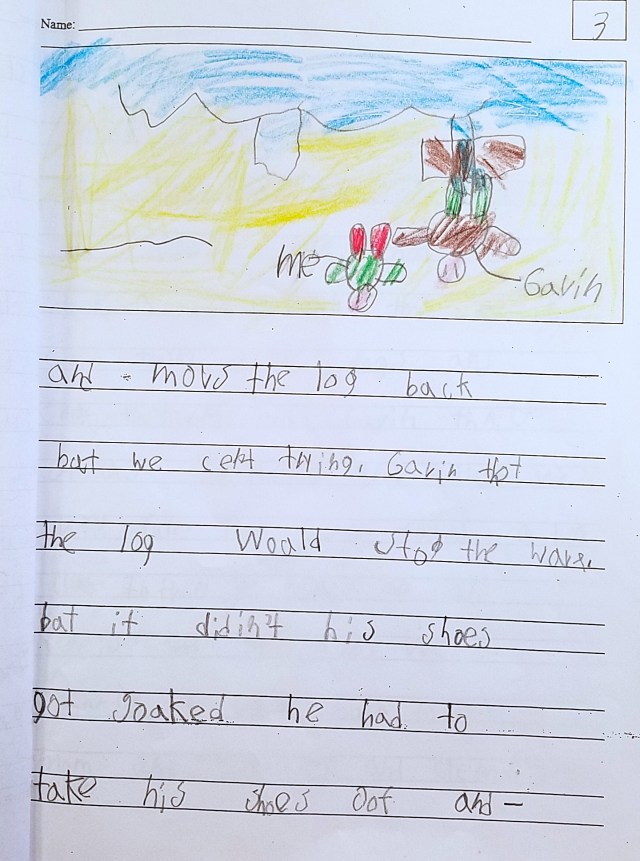 Name:
3
me
Gavin
and move the log back
but we cept trying. Gavin thot
the log Would stop the wave.
but it didin't his shoes
got soaked he had to
take his shoes oof and -